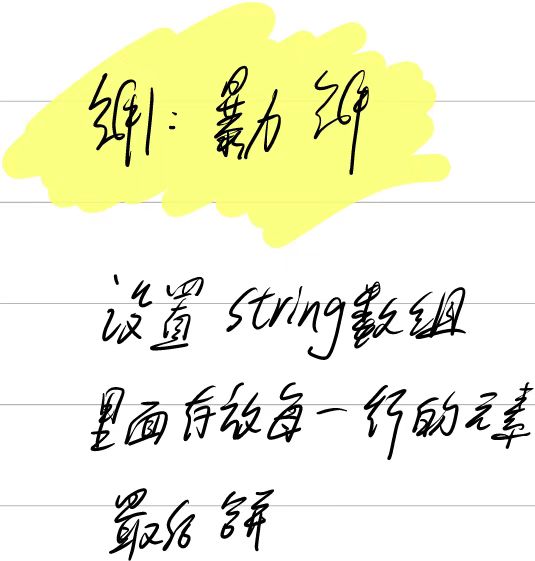 解1：暴力解
设置string数组
里面存放每一行的元素
最后合并